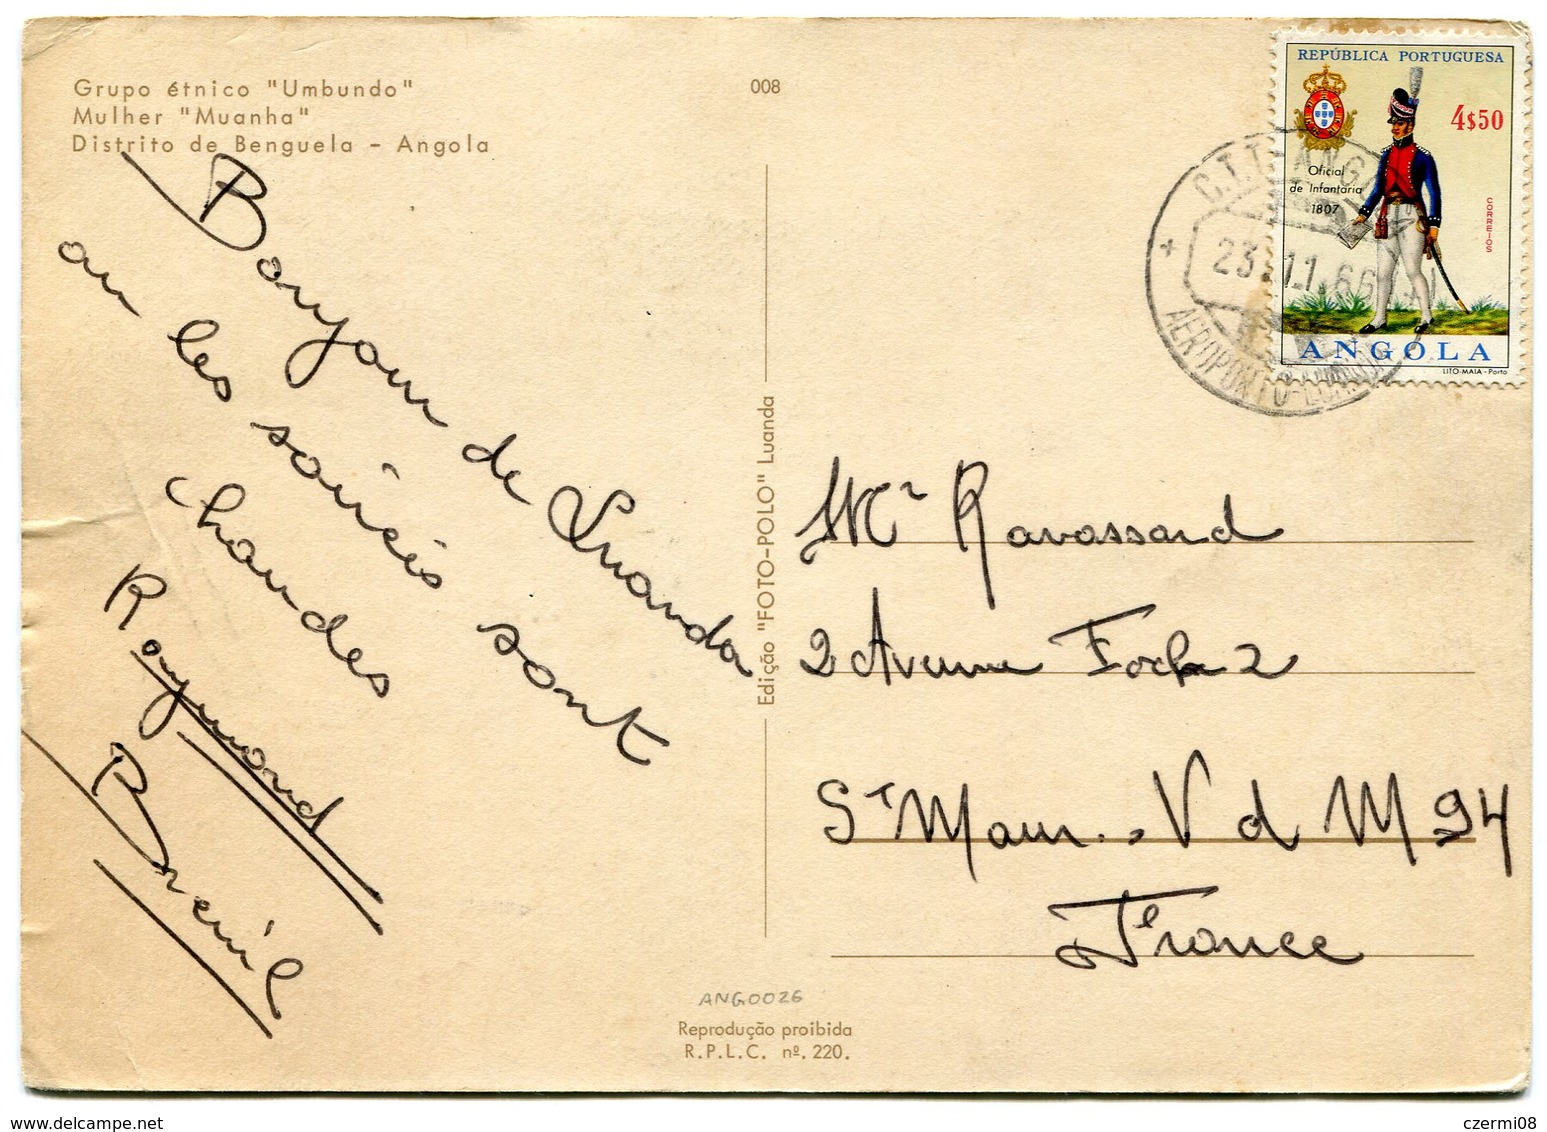 Grupo étnico "Umbundo"
Mulher "Muanha"
Distrito de Benguela - Angola
008
REPÚBLICA PORTUGUESA
4$50
Oficial
de Infantaria
1807
CORREIOS
ANGOLA
LITO-MAIA - Porto
C.T.T.-ANG
23.11.66
AEROPORTO-LUANDA
Bonjour de Luanda
ou les soirées sont
chaudes
Raymond
Breuil
Edição "FOTO-POLO" Luanda
Mr Ravassard
2 Avenue Foch 2
St Maur. - V d M 94
France
ANG0026
Reprodução proibida
R.P.L.C. nº. 220.
delcampe.net
czermi08